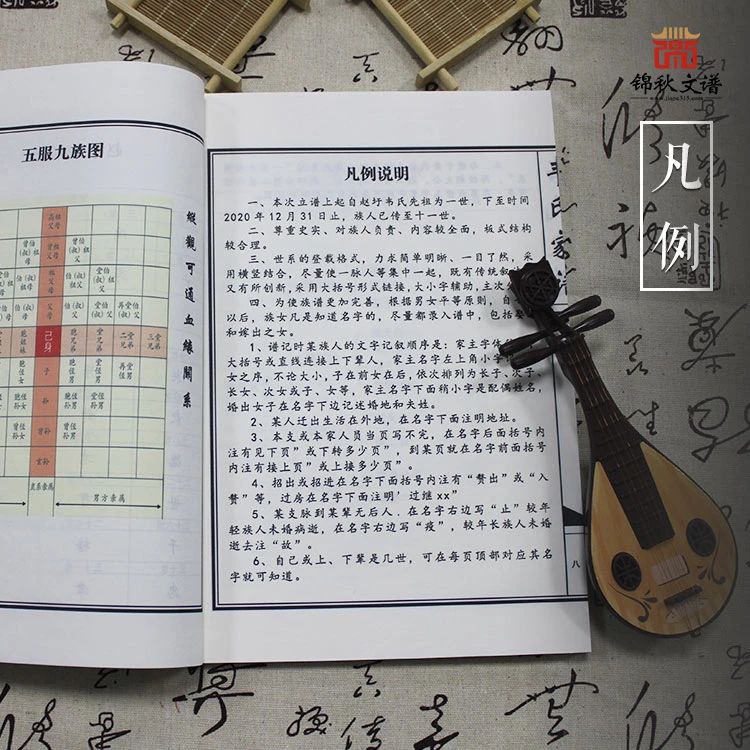 锦秋文谱
www.jiapu315.com
凡例
五服九族图
高祖父母
曾伯(叔)祖母
曾祖父母
曾伯(叔)祖父
伯(叔)祖父
堂伯(叔)祖父
父母
伯(叔)父
堂伯(叔)父
再堂伯(叔)父
胞姐妹
己身
胞兄弟
堂兄弟
二堂兄弟
三堂兄弟
胞侄女
子
胞侄男
堂侄男
再堂侄男
胞侄孙女
孙
胞侄孙男
堂侄孙男
曾孙
玄孙
直系亲属
男方亲属
纵观可通血缘关系
凡例说明
一、本次立谱上起自赵圩韦氏先祖为一世，下至时间
2020年12月31日止，族人已传至十一世。
二、尊重史实、对族人负责、内容较全面，板式结构
较合理。
三、世系的登载格式，力求简单明晰、一目了然，采
用横竖结合，尽量使一脉人等集中一起，既有传统叙
又有所创新，采用大括号形式链接，大小字辅助，主次
四、为使族谱更加完善，根据男女平等原则，自
以后，族女凡是知道名字的，尽量都录入谱中，包括
和嫁出之女。
1、谱记时某族人的文字记叙顺序是：家主字体
大括号或直线连接上下辈人，家主名字在上角小字
女之序，不论大小，子在前女在后，依次排列为长子、次子、
长女、次女或子、女等，家主名字下面稍小字是配偶姓名，
婚出女子在名字下边记述婚地和夫姓。
2、某人迁出生活在外地，在名字下面注明地址。
3、本支或本家人员当页写不完，在名字后面括号内
注有见下页”或下转多少页”，到某页就在名字前面括号
内注有接上页”或上接多少页”。
4、招出或招进在名字下面括号内注有“赘出”或“入
赘”等，过房在名字下面注明’过继xx”
5、某支脉到某辈无后人．在名字右边写“止”较年
轻族人未婚病逝，在名字右边写“疫”，较年长族人未婚
逝去注“故”。
6、自己或上、下辈是几世，可在每页顶部对应其名
字就可知道。
八